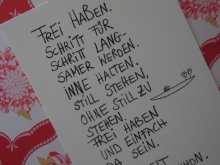 FREI HABEN.
SCHRITT FÜR
SCHRITT LANG-
SAMER WERDEN.
INNE HALTEN.
STILL STEHEN,
OHNE STILL ZU
STEHEN.
FREI HABEN
UND EINFACH
DA SEIN.